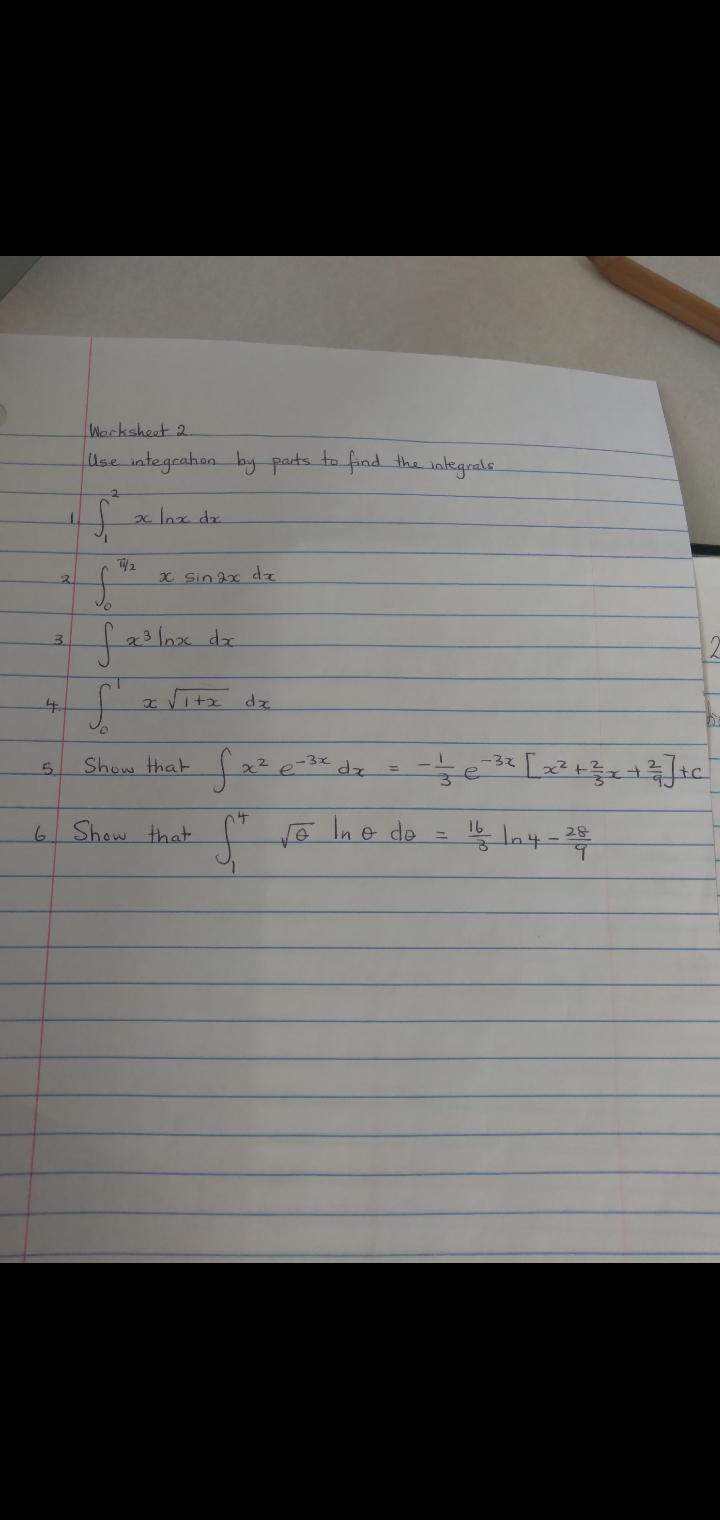 Worksheet 2.
Use integration by parts to find the integrals
1. ∫₁² x lnx dx
2. ∫₀^{π/2} x sin2x dx
3. ∫ x³ lnx dx
4. ∫₀¹ x √(1+x) dx
5. Show that ∫ x² e^{-3x} dx = -1/3 e^{-3x} [x² + 2/3 x + 2/9] + c
6. Show that ∫₁⁴ √θ ln θ dθ = 16/3 ln 4 - 28/9
2